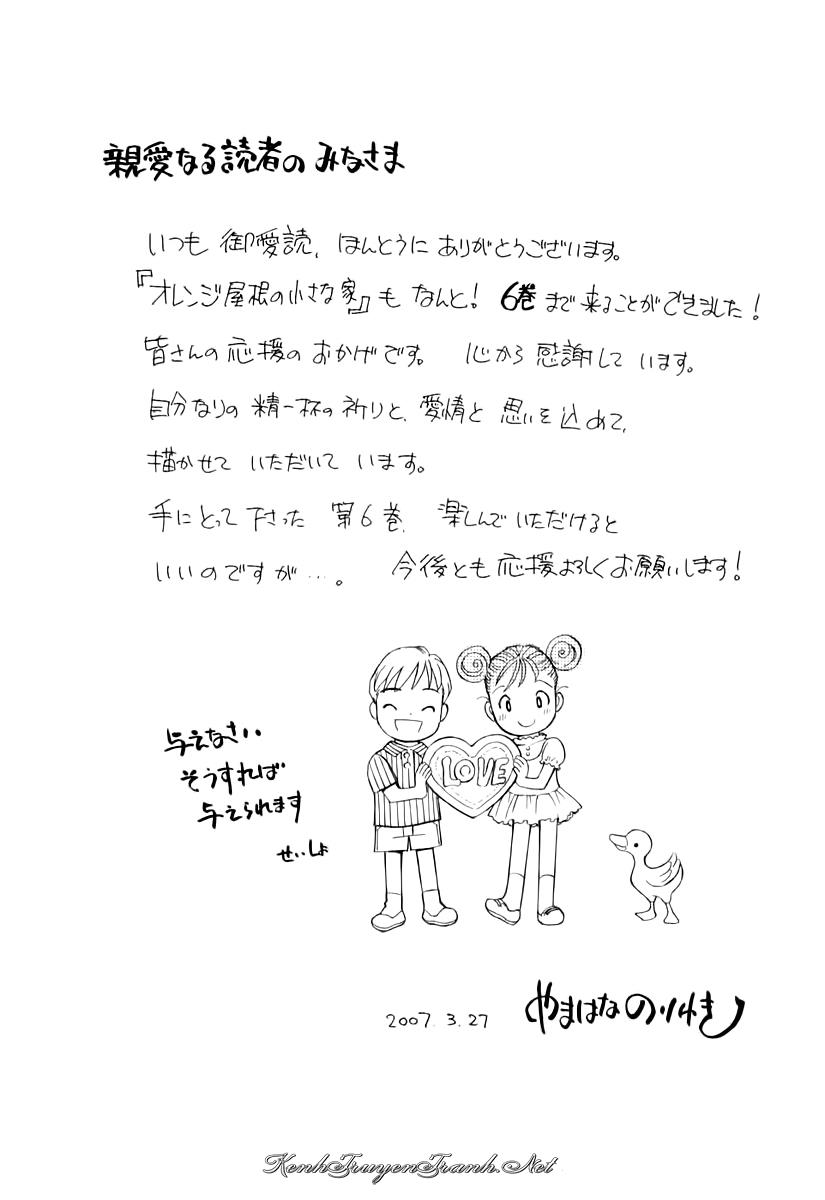 親愛なる読者の みなさま
いつも 御愛読、ほんとうに ありがとうございます。
『オレンジ屋根の小さな家』も なんと! 6巻 まで 来ることができました!
皆さんの 応援の おかげです。 心から 感謝して います。
自分なりの 精一杯の 祈りと、愛情と 思いを 込めて、
描かせて いただいて います。
手にとって 下さった 第6巻、楽しんで いただけると
いいのですが…。 今後とも 応援よろしくお願いします!
LOVE
与えなさい
そうすれば
与えられます
せいしょ
2007. 3. 27
やまはな のりゆき
KenhTruyenTranh.Net